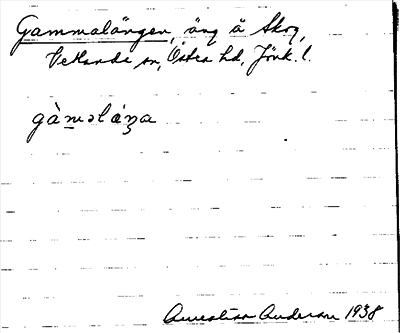 Gammalängen, äng å Skog,
Vetlanda sn, Östra hd, Jönk. l.
gàməláŋa
Anderson 1938